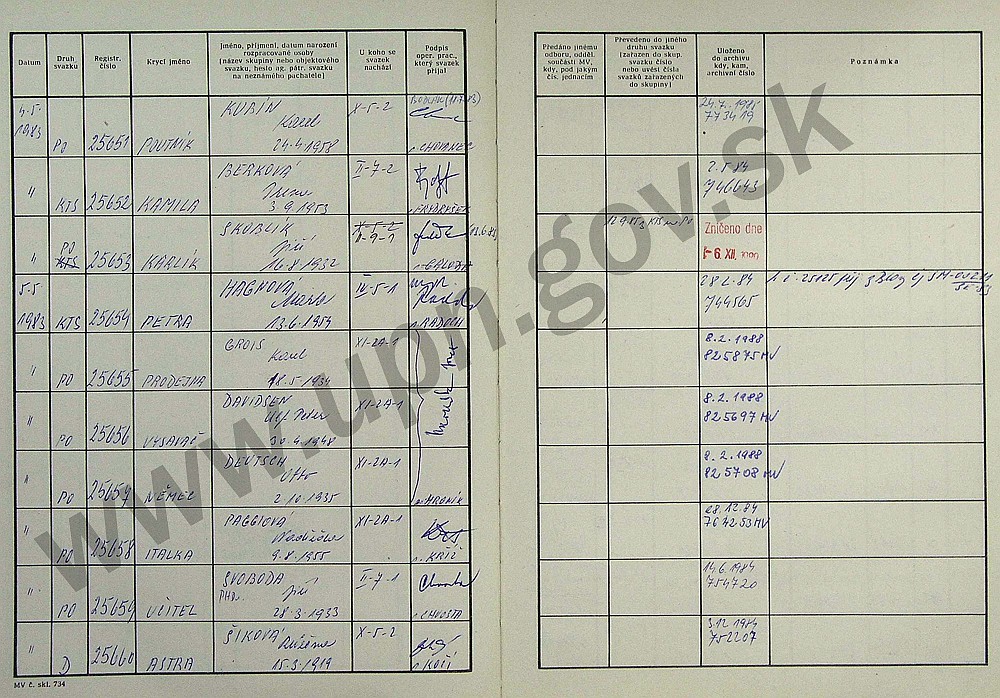 Datum
Druh svazku
Registr. číslo
Krycí jméno
Jméno, příjmení, datum narození
rozpracované osoby
(název skupiny nebo objektového
svazku, heslo ag. pátr. svazku
na neznámého pachatele)
U koho se
svazek
nachází
Podpis
oper. prac.,
který svazek
přijal
Předáno jinému
odboru, odděl.
součásti MV,
kdy, pod jakým
čís. jednacím
Převedeno do jiného
druhu svazku
(zařazen do skup.
svazku číslo
nebo uvésti čísla
svazků zařazených
do skupiny)
Uloženo
do archivu
kdy, kam,
archivní číslo
Poznámka
4.5.
1983 PO 25651 POUTNÍK
KUBÍN
Karel
24.4.1958
X-5-2
24.7.1985
773419
" KTS 25652 KAMILA
BERKOVÁ
Irena
3.9.1953
II-7-2
2.5.84
746643
" PO KTS 25653 KARLÍK
SKOBLÍK
Jiří
16.8.1932
X-5-2
II-9-1
Zničeno dne
-6. XII.
5.5.
1983 KTS 25654 PETRA
Marie
13.6.1954
IV-5-1
744565
" PO 25655 PRODEJNA
GROIS
Karel
18.5.1934
XI-2A-1
8.2.1988
825875 MV
" PO 25656 VYSAVAČ
DAVIDSEN
Ulf Peter
30.4.1948
XI-2A-1
8.2.1988
825697 MV
" PO 25657 NĚMEC
DEUTSCH
Otto
2.10.1935
XI-2A-1
HRONÍK
8.2.1988
825708 MV
" PO 25658 ITALKA
PAGGIOVÁ
9.8.1955
XI-2A-1
KŘÍŽ
28.12.84
764253 MV
" PO 25659 UČITEL
SVOBODA
PHDr. Jiří
28.3.1933
II-7-1
CHVOSTA
14.6.1984
754720
" D 25660 ASTRA
ŠIKOVÁ
Růžena
15.3.1919
X-5-2
KOŠÍ
3.12.1984
752207
MV č. skl. 734
www.upn.gov.sk